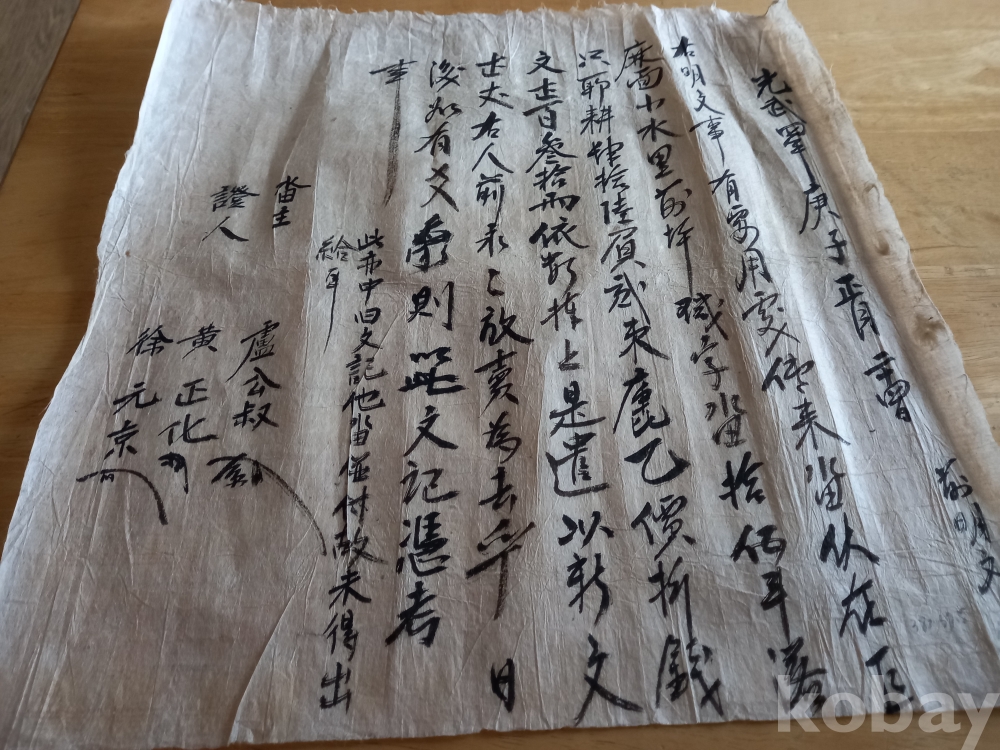 光武四年庚子正月 日 前明文
右明文事有要用處傳來畓伏在
庫面小水里前坪 字畓拾 斗落
只耶耕 拾陸負貳束庫乙價折錢
文 百參拾兩依數捧上是遣以新文
右人前永〻放賣為去乎日
後如有爻象則以此文記憑考
事
此畓中旧文記他畓並付故未得出
給事
畓主 盧公叔
證人 黄正化
徐元京
kobay